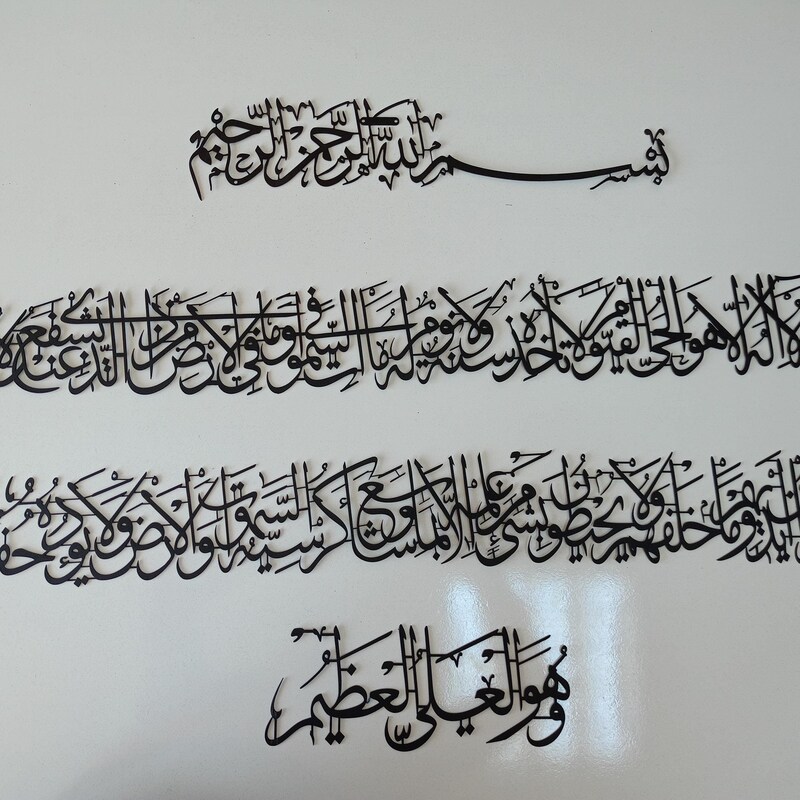 بسم الله الرحمن الرحيم
لا اله الا هو الحي القيوم لا تأخذه سنة ولا نوم له ما في السموات وما في الارض من ذا الذي يشفع عند
ايديهم وما خلفهم ولا يحيطون بشئ من علمه الا بما شاء وسع كرسيه السموات والارض ولا يؤده حف
وهو العلي العظيم